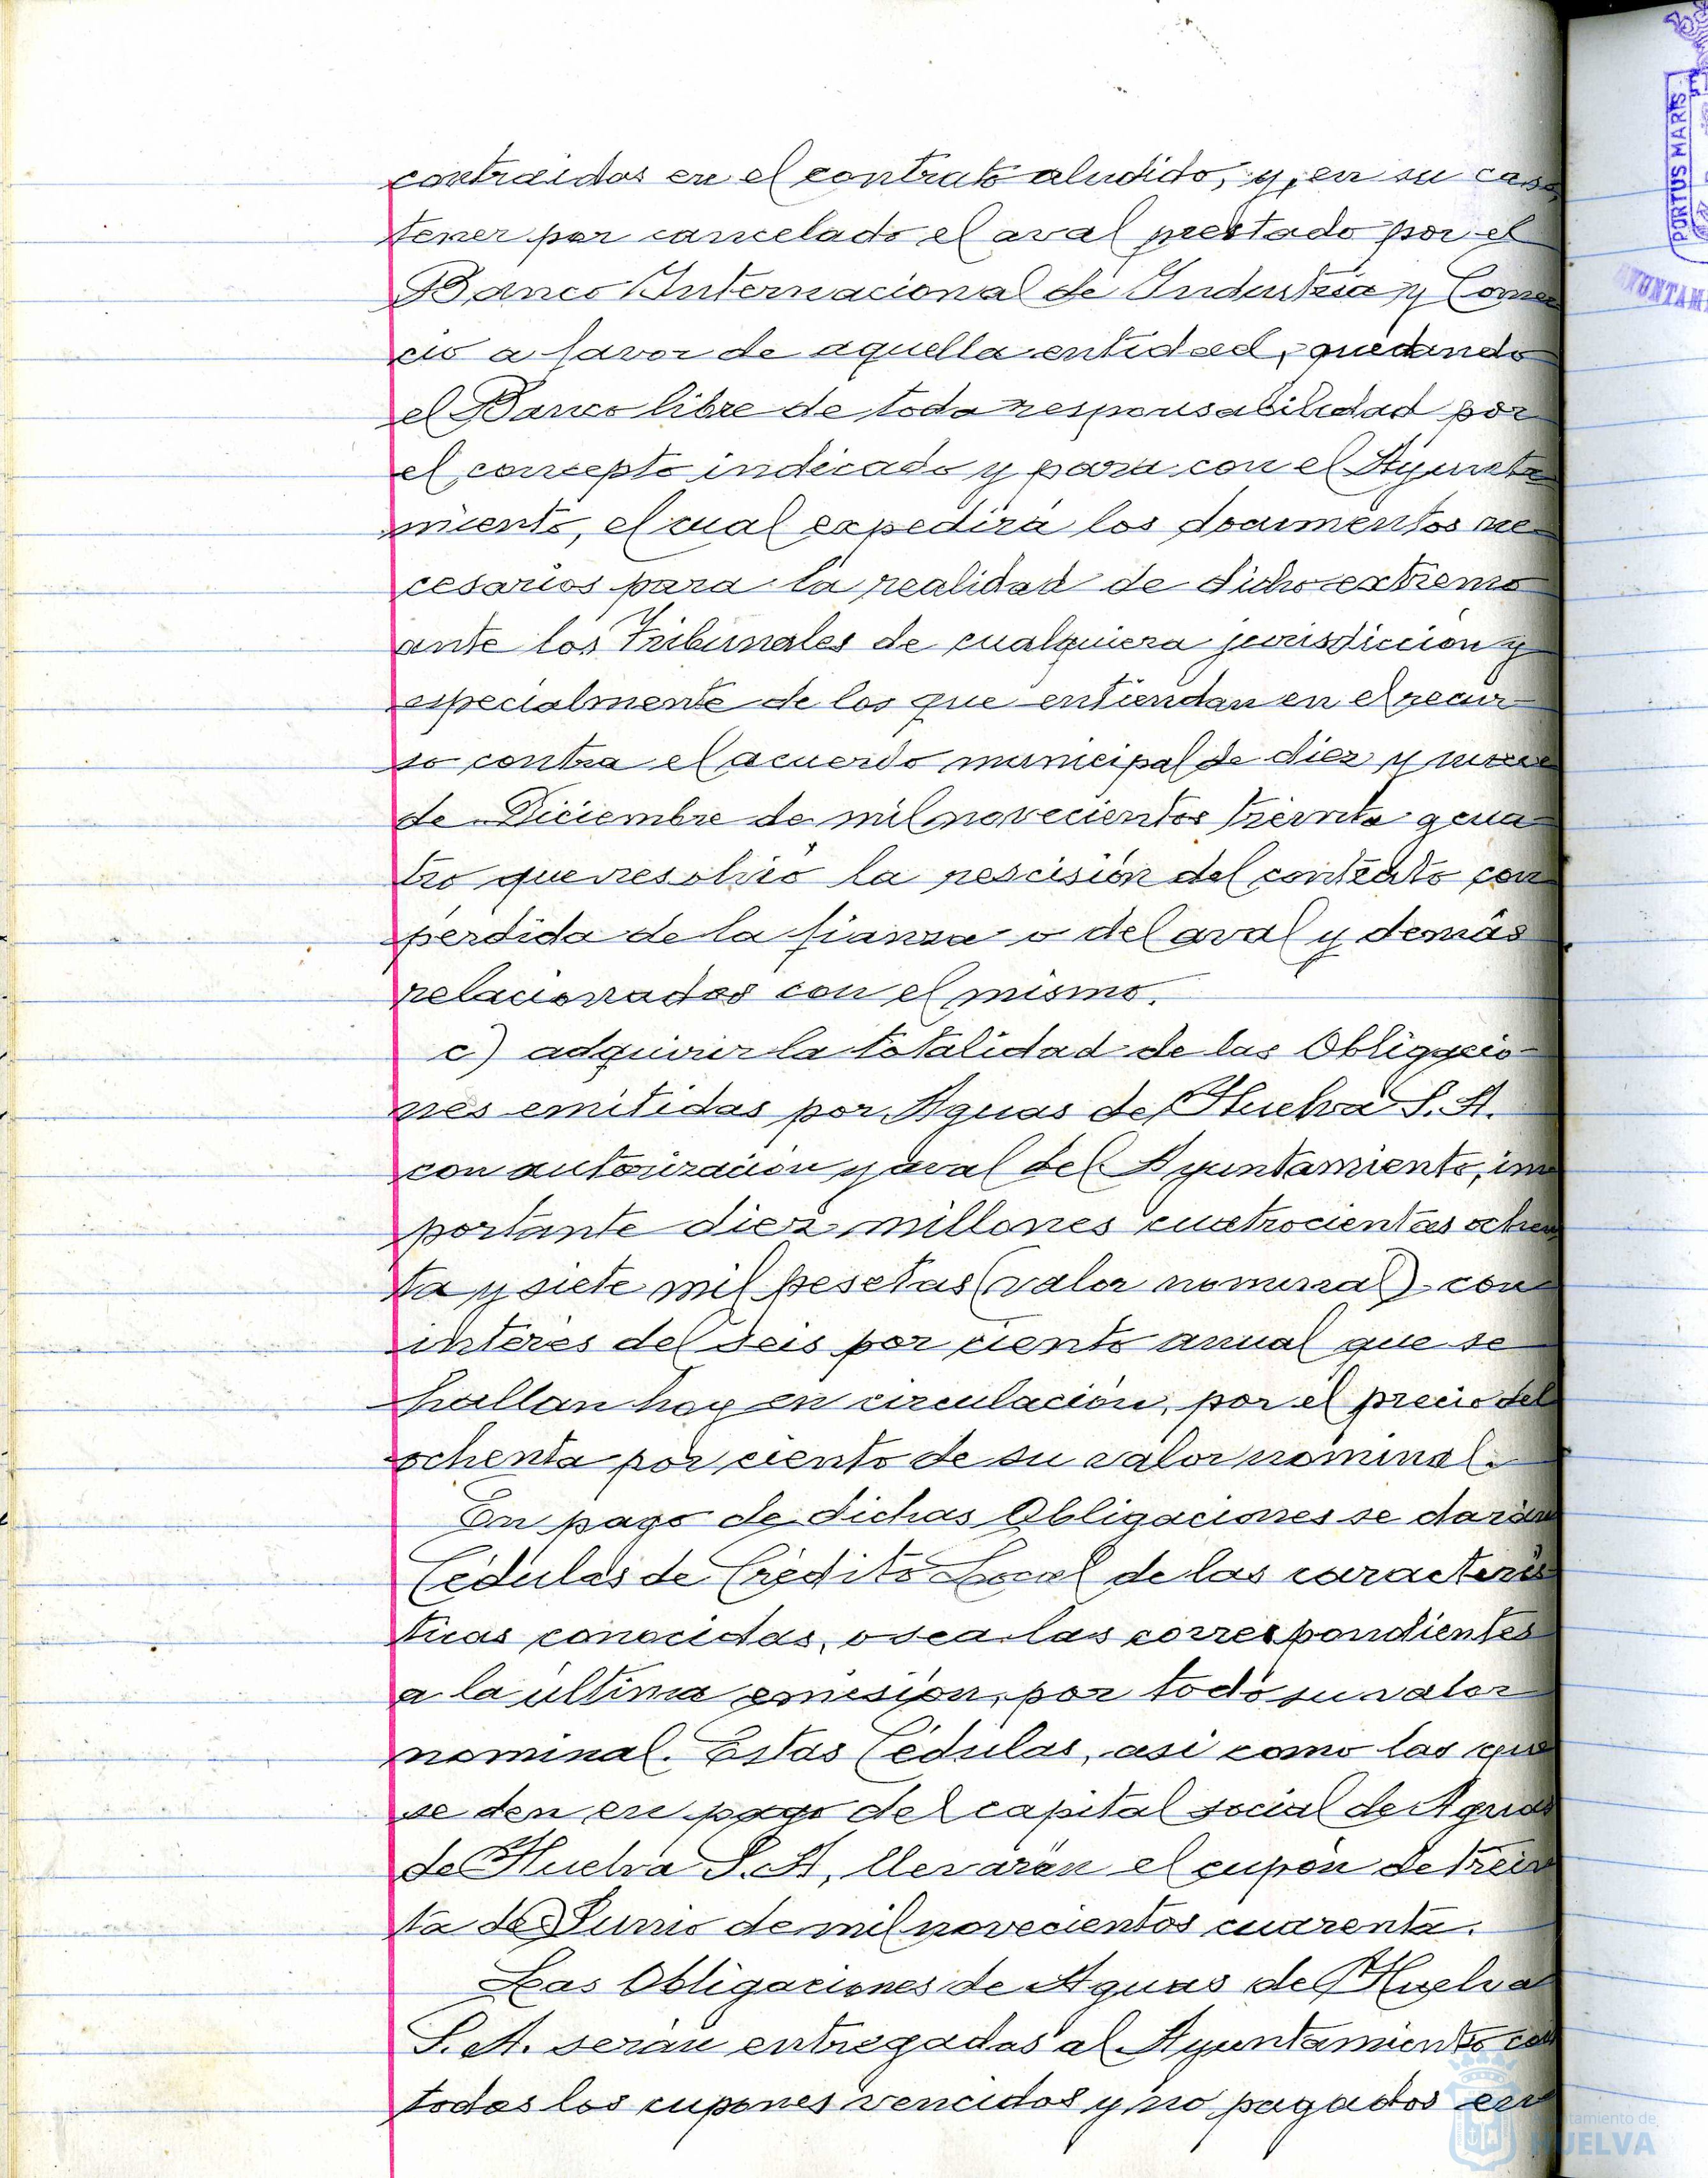 contraidos en el contrato aludido, y, en su caso,
tener por cancelado el aval prestado por el
Banco Internacional de Industria y Comer
cio a favor de aquella entidad, quedando
el Banco libre de toda responsabilidad por
el concepto indicado y para con el Ayunta
miento, el cual expedirá los documentos ne
cesarios para la realidad de dicho extremo
ante los Tribunales de cualquiera jurisdiccion y
especialmente de los que entiendan en el recur
so contra el acuerdo municipal de diez y nueve
de Diciembre de mil novecientos treinta y cua
tro que resolvió la rescisión del contrato con
perdida de la fianza o del aval y demás
relacionados con el mismo.
c) adquirir la totalidad de las Obligacio
nes emitidas por Aguas de Huelva S. A.
con autorización y aval del Ayuntamiento, im
portante diez millones cuatrocientas ochen
ta y siete mil pesetas (valor nominal) con
interés del seis por ciento anual que se
hallan hoy en circulación, por el precio del
ochenta por ciento de su valor nominal.
En pago de dichas Obligaciones se darán
Cédulas de Crédito Local de las caracterís
ticas conocidas, o sea las correspondientes
a la última emisión, por todo su valor
nominal. Estas Cédulas, asi como las que
se den en pago del capital social de Aguas
de Huelva S. A, llevarán el cupón de trein
ta de Junio de mil novecientos cuarenta.
Las Obligaciones de Aguas de Huelva
S. A. serán entregadas al Ayuntamiento con
todos los cupones vencidos y no pagados en
PORTUS MARIS
HUELVA